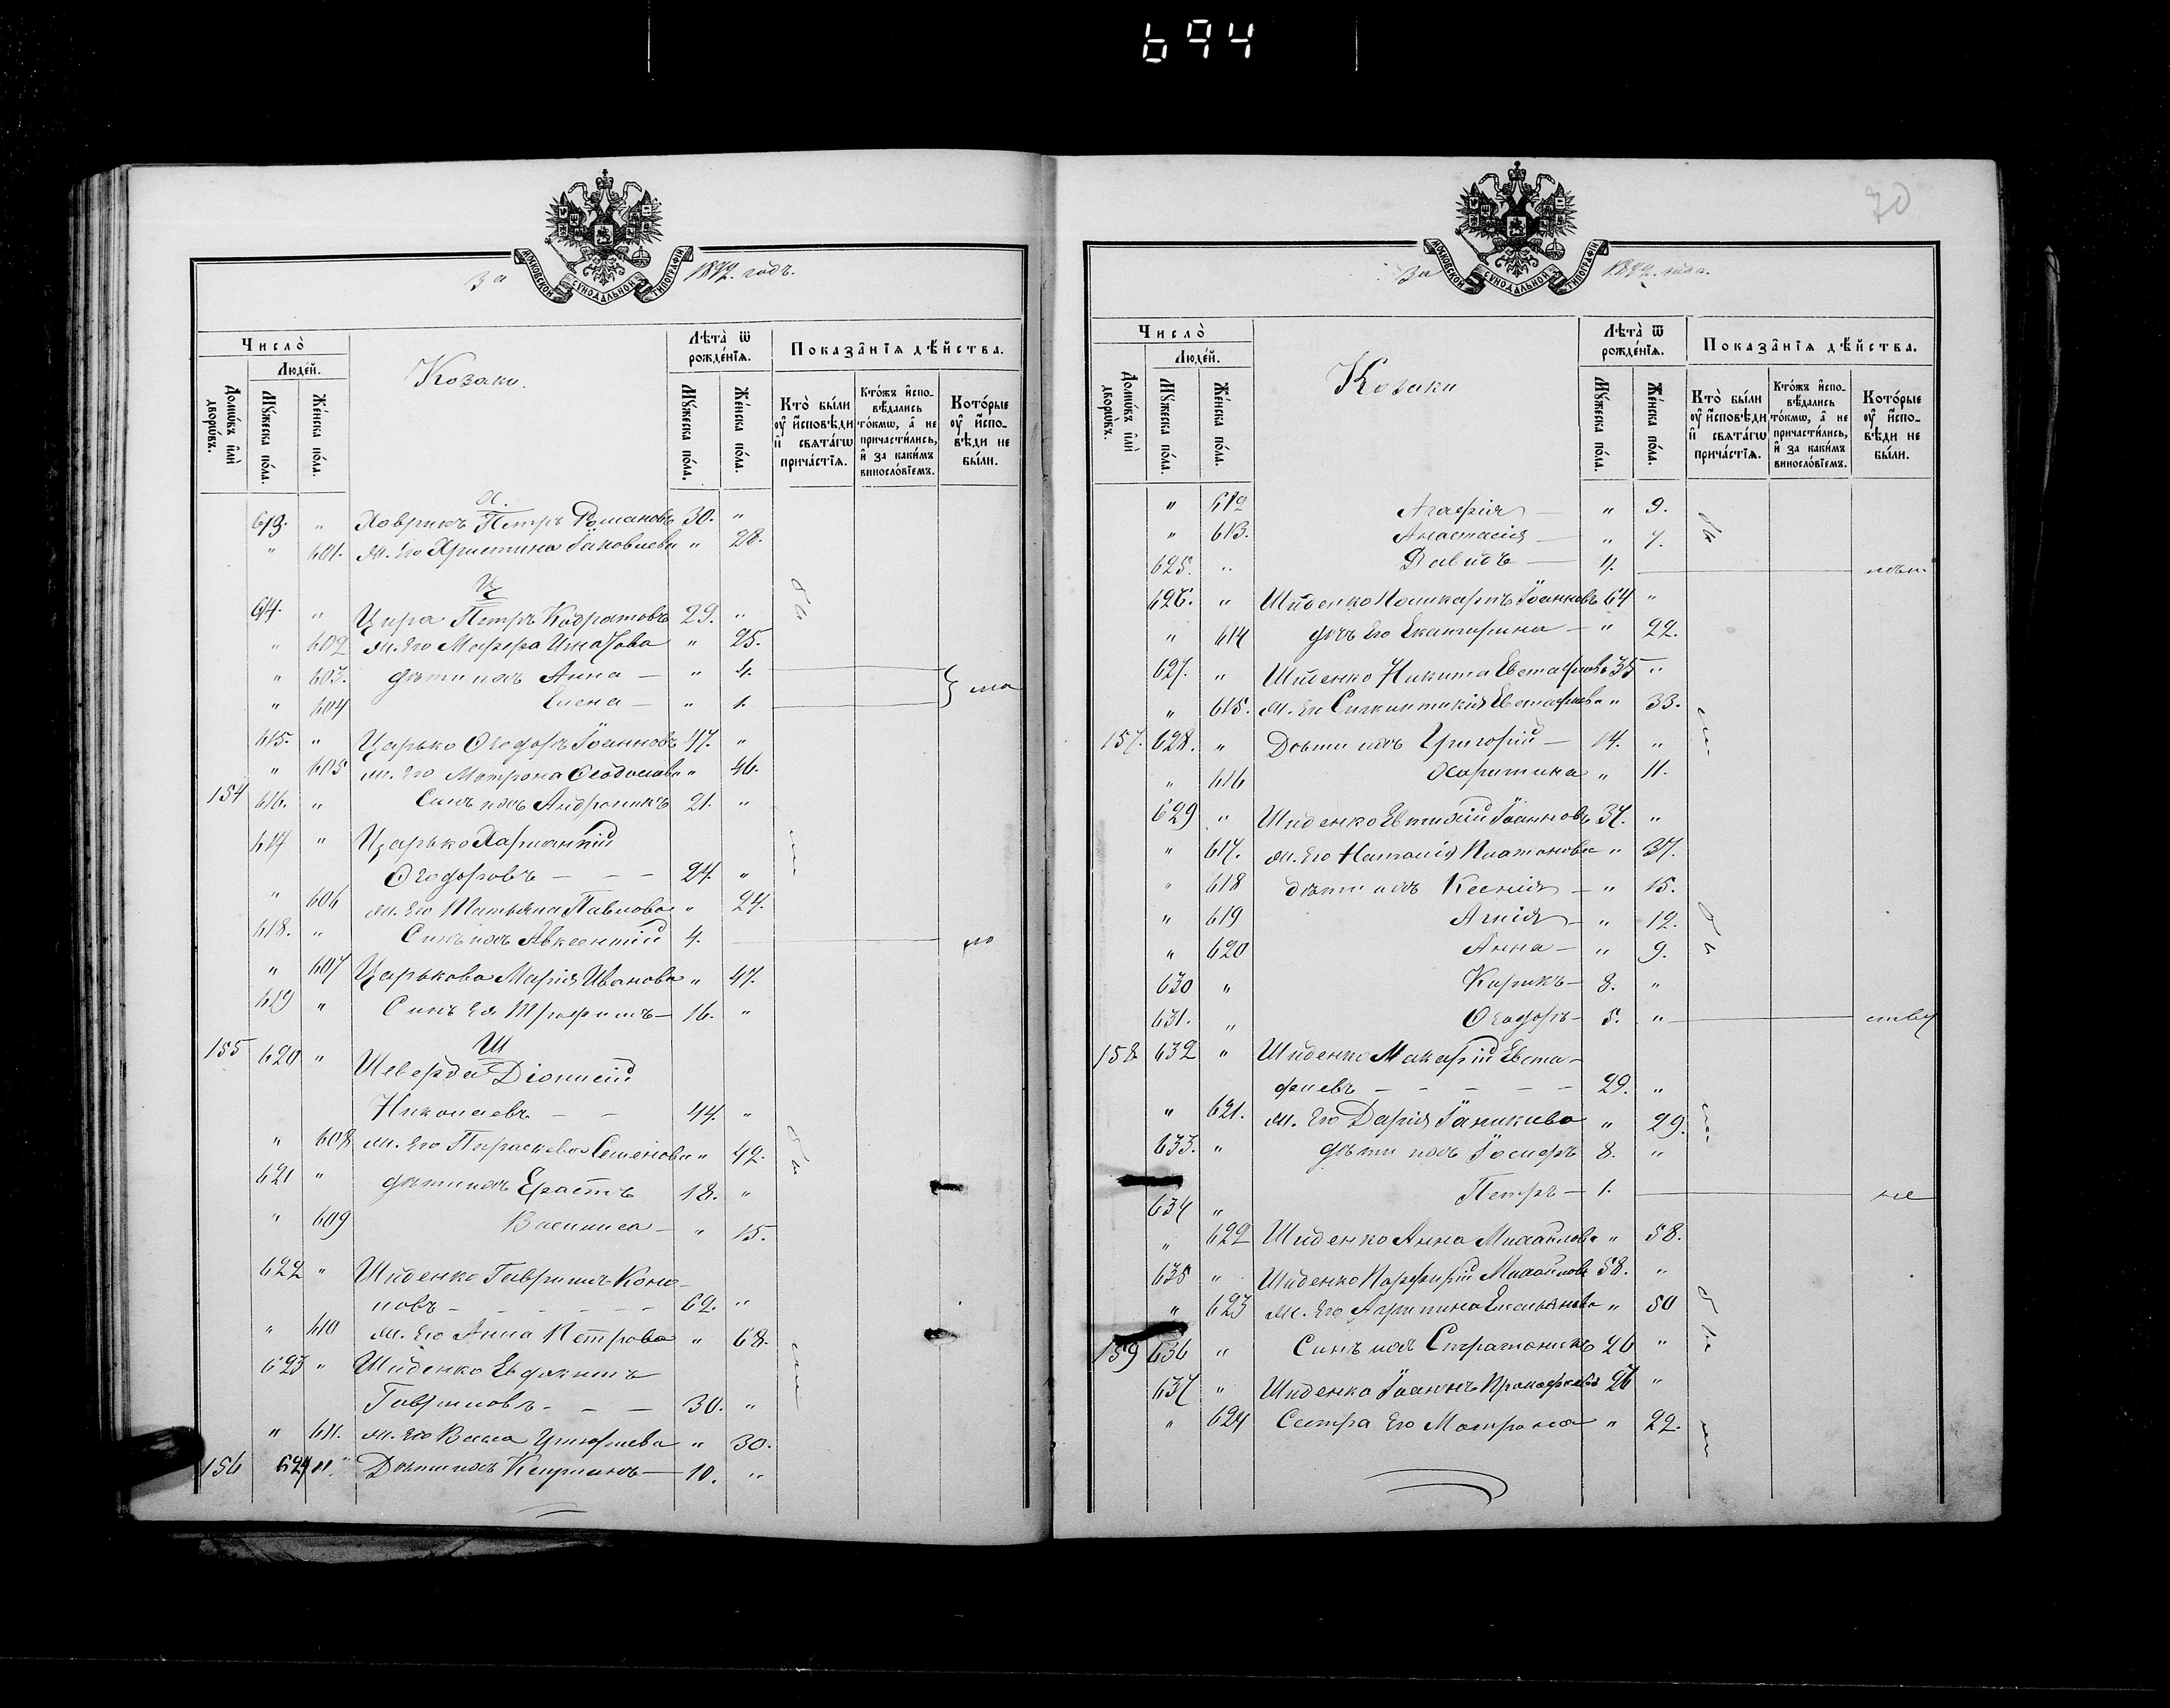 694
70
МОСКОВСКОЙ СѴНОДАЛЬНОЙ ТИПОГРАФІИ
За 1872. годъ.
Число̀
Людей.
Домѡвъ и҆лѝ дворѡвъ.
Мꙋжеска по́ла.
Же́нска по́ла.
Козаки.
Лѣта̀ ѿ рожде́нїѧ.
Мꙋжеска по́ла.
Же́нска по́ла.
Показа̑нїѧ дѣ́йства.
Кто̀ бы́ли ᲂу҆ и҆сповѣди и҆ свѧта́гѡ прича́стїѧ.
Кто́жъ и҆спо-вѣдались то́кмѡ, а҆ не причасти́лись, и҆ за каки́мъ винослóвїемъ.
Кото́рые ᲂу҆ и҆спо-вѣди не бы́ли.
613. " Ховрикъ Петръ Романовъ 30. "
" 601. Ж. его Христина Іаковлева " 28.
Ц
614. " Цира Петръ Кодратовъ 29. "
" 602 Ж. его Марѳа Игнатова " 25.
" 603. Дѣти ихъ Анна — " 4.
" 604 Елена — " 1.
615. " Царько Ѳеодоръ Іоанновъ 47. "
" 605 Ж. его Матрона Ѳеодосіева " 46.
154 616. " Сынъ ихъ Андроникъ 21. "
617 " Царько Харлампій
Ѳеодоровъ — — — 24. "
" 606 Ж. его Татьяна Павлова " 24.
618. " Сынъ ихъ Авксентій 4.
" 607 Царькова Марія Иванова " 47.
619 " Сынъ ея Трофимъ — 16. "
Ш
155 620 " Шеверда Діонисій
Николаевъ — — 44. "
" 608 Ж. его Параскева Семенова " 42.
621 " Дѣти ихъ Ерастъ 18. "
" 609 Василиса — " 15.
622 " Шиденко Гавріилъ Коно-
новъ — — — — — 62. "
" 610 Ж. его Анна Петрова " 68.
623 " Шиденко Евдокимъ
Гавриловъ — — — 30. "
" 611. Ж. его Васса Григорьева " 30.
156 624 " Дѣти ихъ Кипріанъ — 10. "
МОСКОВСКОЙ СѴНОДАЛЬНОЙ ТИПОГРАФІИ
За 1872. годъ.
Число̀
Людей.
Домѡвъ и҆лѝ дворѡвъ.
Мꙋжеска по́ла.
Же́нска по́ла.
Козаки
Лѣта̀ ѿ рожде́нїѧ.
Мꙋжеска по́ла.
Же́нска по́ла.
Показа̑нїѧ дѣ́йства.
Кто̀ бы́ли ᲂу҆ и҆сповѣди и҆ свѧта́гѡ прича́стїѧ.
Кто́жъ и҆спо-вѣдались то́кмѡ, а҆ не причасти́лись, и҆ за каки́мъ винослóвїемъ.
Кото́рые ᲂу҆ и҆спо-вѣди не бы́ли.
" 612 Агафія — " 9.
" 613. Анастасія — " 7.
625. " Давидъ — 4.
626. " Шиденко Поликарпъ Іоанновъ 64 "
" 614 Дочь его Екатерина — " 22.
627. " Шиденко Никита Евстафіевъ 35 "
" 615. Ж. его Синклитикія Евстафіева " 33.
157. 628. " Дѣти ихъ Григорій — 14. "
" 616 Харитина " 11.
629 " Шиденко Евтихій Іоанновъ 37. "
" 617. Ж. его Наталія Платонова " 37.
" 618 Дѣти ихъ Ксенія — " 15.
" 619 Агнія — " 12.
" 620 Анна — " 9.
630 " Кирикъ — 8. "
631. " Ѳеодоръ — 5. "
158 632 " Шиденко Макарій Евста-
фіевъ — — — — — 29. "
" 621. Ж. его Дарія Іаникіева " 29.
633. " Дѣти ихъ Іосифъ 8. "
634 " Петръ — 1.
" 622 Шиденко Анна Михаилова " 58.
635 " Шиденко Порфирій Михаиловъ 58. "
" 623 Ж. его Агрипина Емельянова " 50
159 636 " Сынъ ихъ Стратоникъ 20 "
637 " Шиденко Іоаннъ Прокофьевъ 26 "
" 624 Сестра его Матрона " 22.